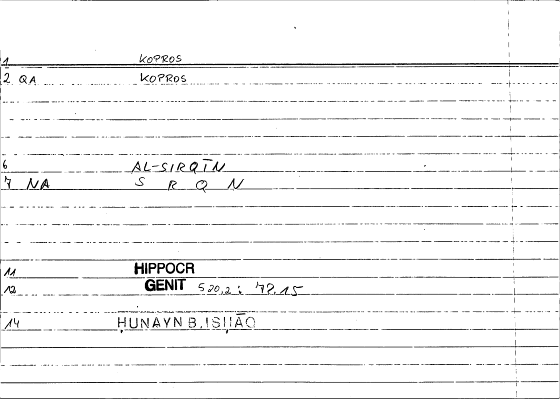 1 KOPROS
2 QA KOPROS
6 AL-SIRQĪN
7 NA S R Q N
11 HIPPOCR
12 GENIT 520,2 : 77.15
14 ḤUNAYN B. ISḤĀQ